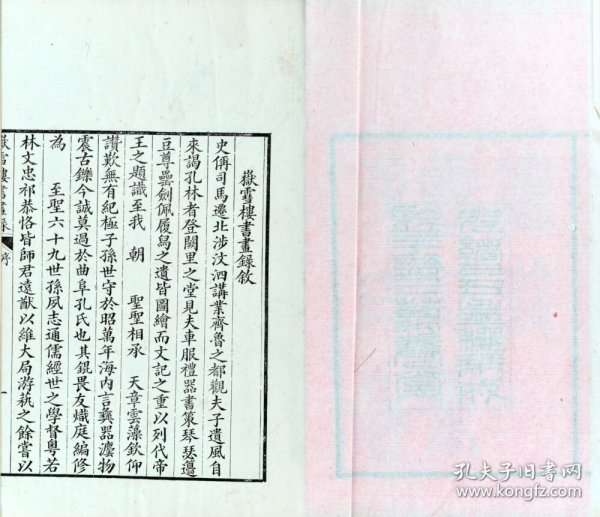 嶽雪樓書畫錄敘
史偁司馬遷北涉汶泗講業齊魯之都觀夫子遺風自
來謁孔林者登闕里之堂見夫車服禮器書策琴瑟籩
豆尊罍劍佩履舄之遺皆圖繪而文記之重以列代帝
王之題識至我 朝 聖聖相承 天章雲藻欽仰
讚歎無有紀極子孫世守於昭萬年海内言彝器瓌物
震古鑠今誠莫過於曲阜孔氏也其錕畏友熾庭編修
為 至聖六十九世孫夙志通儒經世之學督粵若
林文忠祁恭恪皆師君遠猷以維大局游蓺之餘嘗以
嶽雪樓書畫錄 序 一
孔夫子旧书网
www.kongfz.com